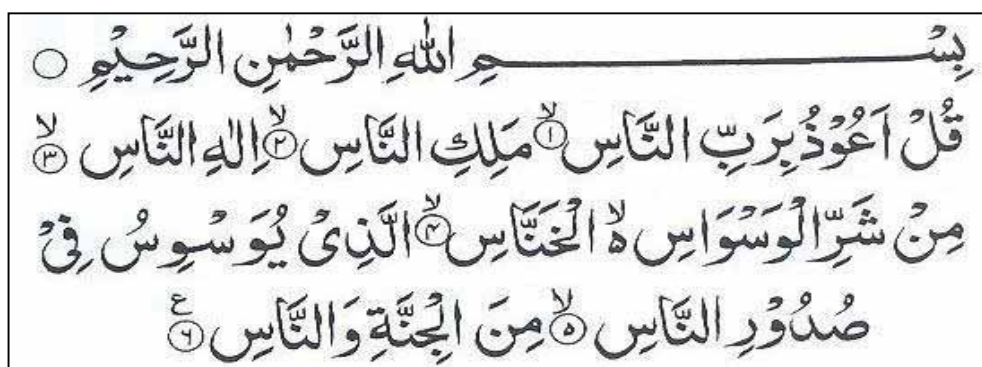 بِسْــــــــــــمِ اللّٰهِ الرَّحْمٰنِ الرَّحِيْمِ ۝
قُلْ اَعُوْذُ بِرَبِّ النَّاسِ ۙ﴿۱﴾ مَلِكِ النَّاسِ ۙ﴿۲﴾ اِلٰهِ النَّاسِ ۙ﴿۳﴾
مِنْ شَرِّ الْوَسْوَاسِ ۙ۬ الْخَنَّاسِ ۙ﴿۴﴾ الَّذِیْ يُوَسْوِسُ فِیْ
صُدُوْرِ النَّاسِ ۙ﴿۵﴾ مِنَ الْجِنَّةِ وَالنَّاسِ ﴿۶﴾ ع